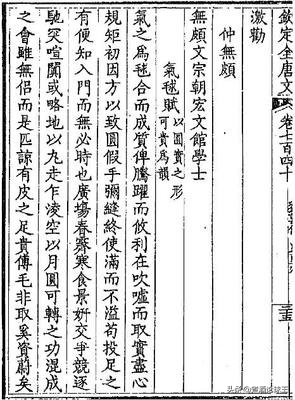 欽定全唐文 卷七百四十
激勸
仲無頗
無頗文宗朝宏文館學士
氣毬賦 以圓實之形可貴為韻
氣之為毬合而成質俾騰躍而攸利在吹噓而取實盡心
規矩初因方以致圓假手彌縫終使滿而不溢苟投足之
有便知入門而無必時也廣場春霽寒食景妍交爭競逐
馳突喧闐或略地以丸走乍淩空以月圓可轉之功混成
之會雖無侶而是匹諒有皮之足貴傅毛非取奚資蔚矣
头条